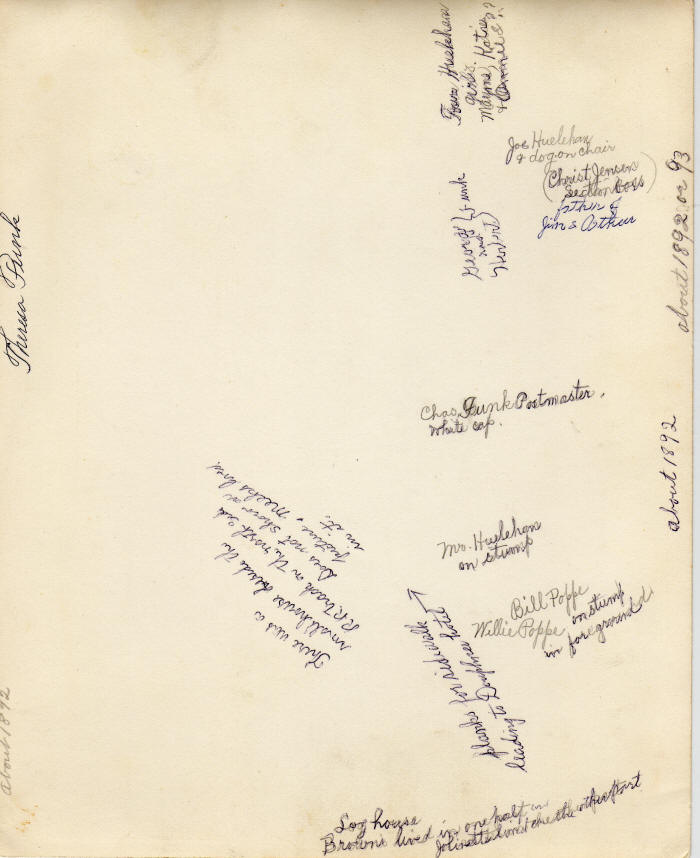 Four Huelehan
girls
Mayme, Katie
& ??
Joe Huelehan
& dog on chair
(Christ Jensen
Section Boss)
father of
Jim & Arthur
George Funk
and
about 1892 or 93
Theresa Funk
Chas Funk Postmaster,
white cap.
about 1892
There was a
small house beside the
R.R. track on the north side
Does not show in
picture. Meeks lived
in it.
Mr. Huelehan
on stump
Bill Poppe
Willie Poppe on stump
in foreground
planks for sidewalk
leading to hotel
about 1892
Log house
Browns lived in one half
the other part